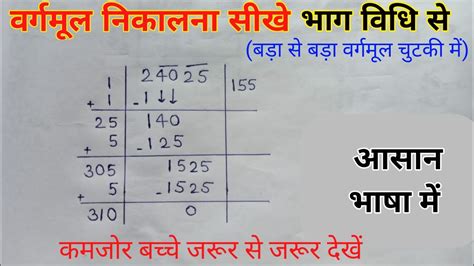 वर्गमूल निकालना सीखे भाग विधि से
(बड़ा से बड़ा वर्गमूल चुटकी में)
1 | 24025 | 155
+ 1 | -1↓↓
25 | 140
+ 5 | -125
305 | 1525
+ 5 | -1525
310 | 0
आसान
भाषा में
कमजोर बच्चे जरूर से जरूर देखें